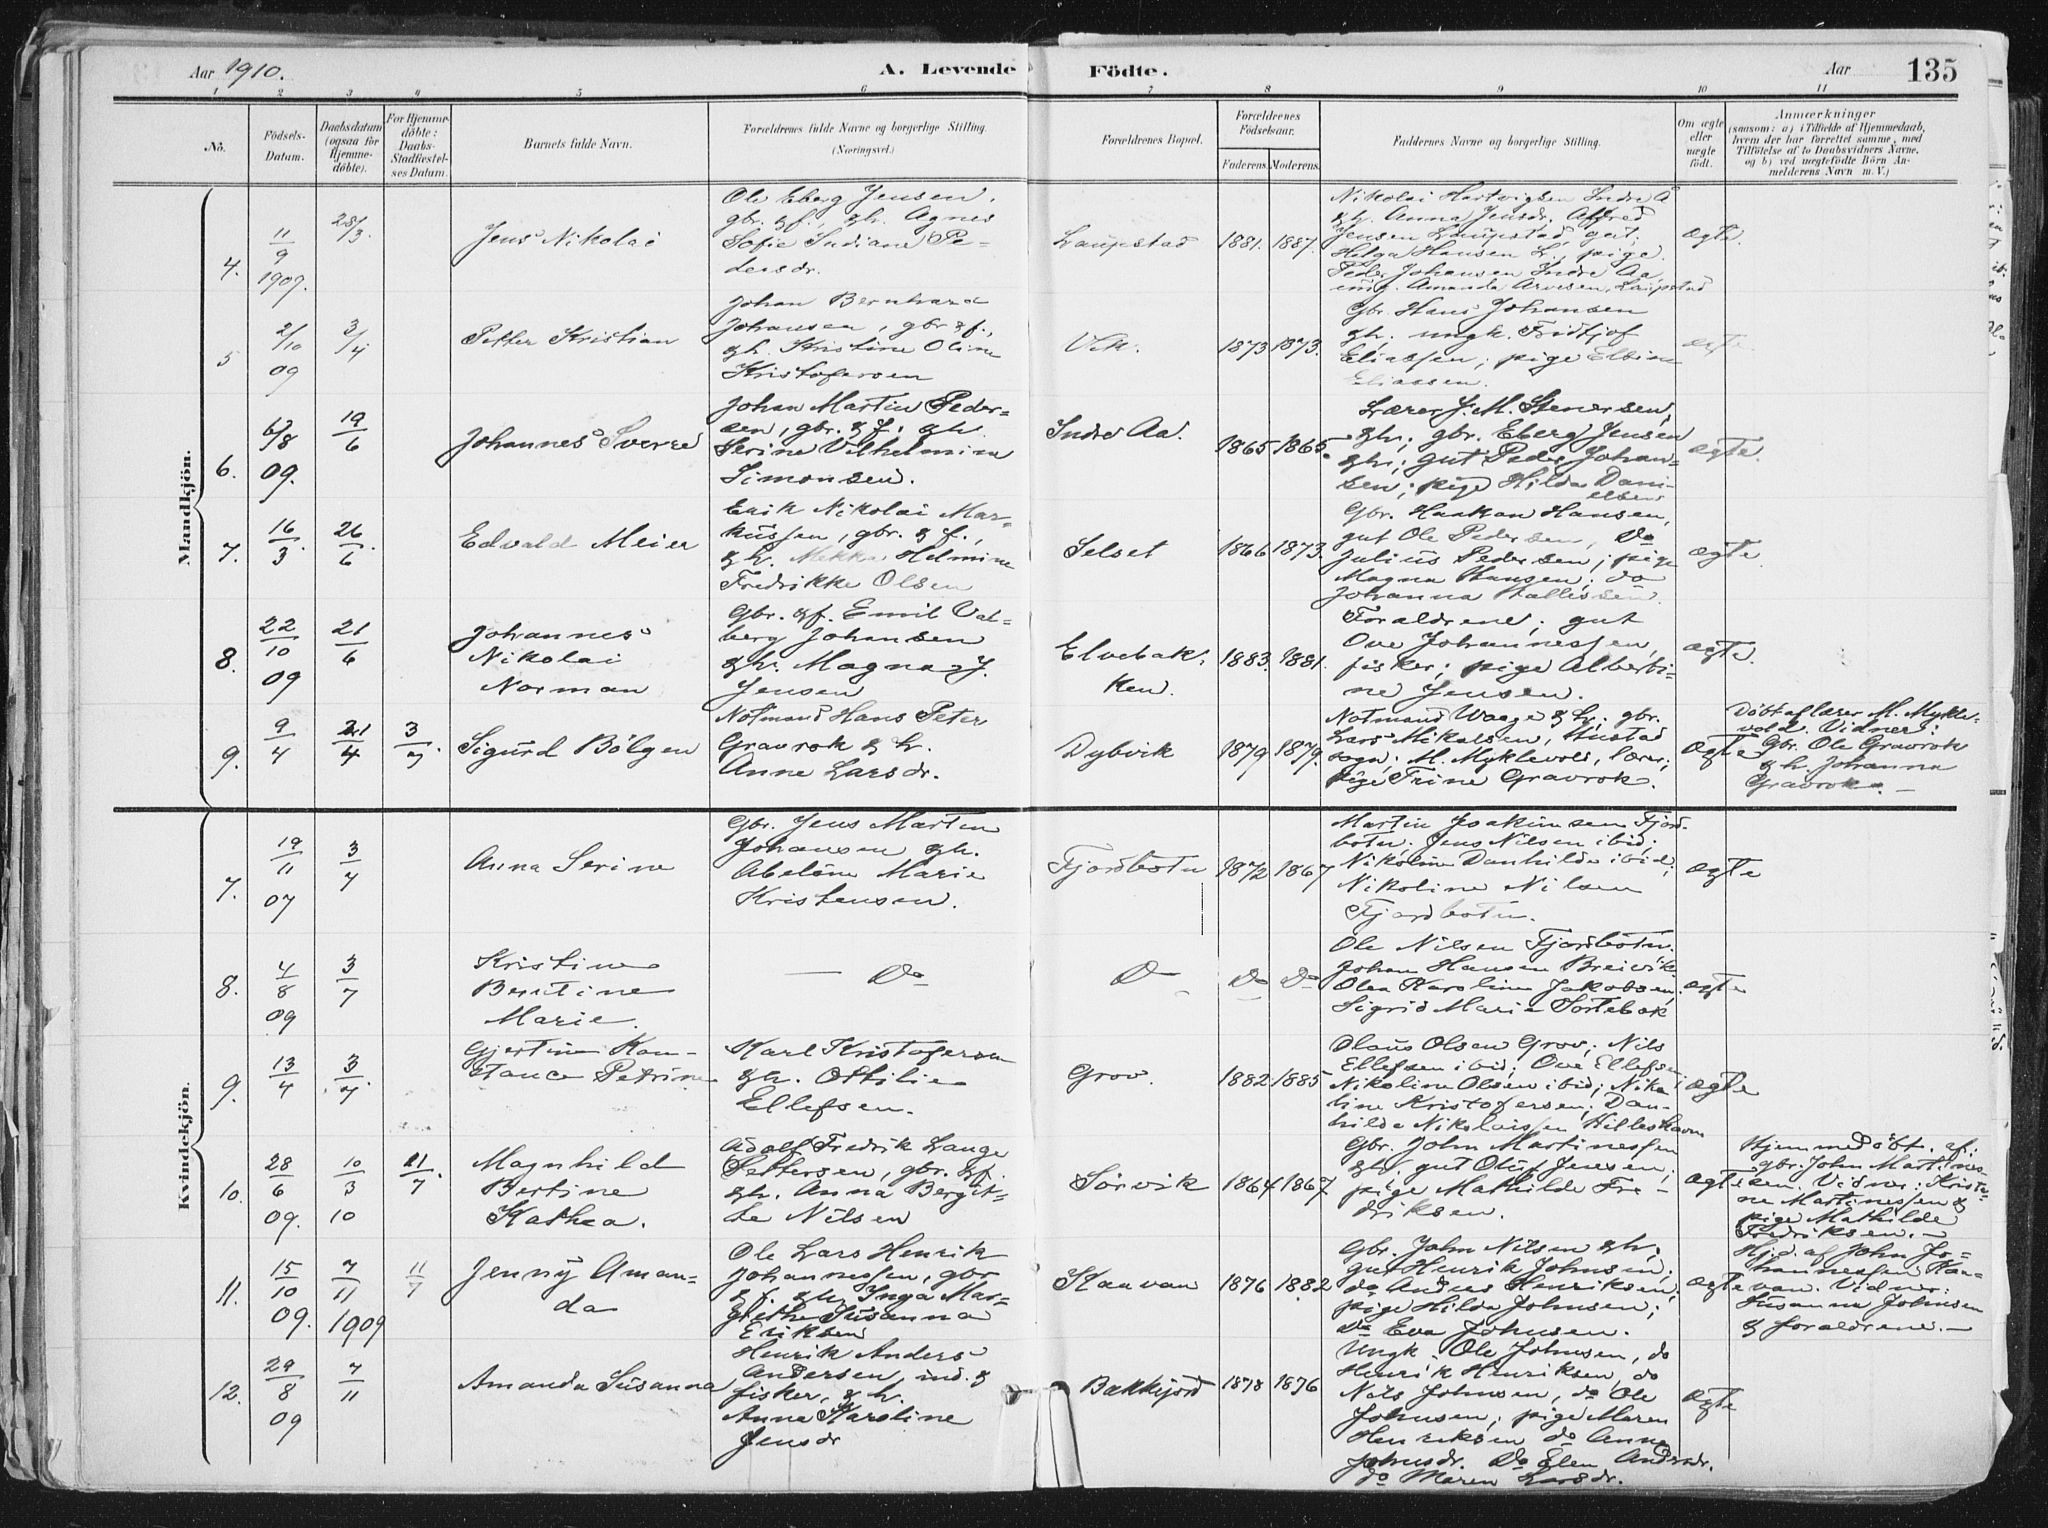 Aar 1910.
A. Levende Födte.
Aar
135
1 2 3 4 5 6 7 8 9 10 11
No.
Födsels-
Datum.
Daabsdatum
(ogsaa for
Hjemme-
döbte).
For Hjemme-
döbte:
Daabs-
Stadfæstel-
ses Datum.
Barnets fulde Navn.
Forældrenes fulde Navne og borgerlige Stilling.
(Næringsvei.)
Forældrenes Bopæl.
Forældrenes
Födselsaar.
Faderens. Moderens.
Faddernes Navne og borgerlige Stilling.
Om ægte
eller
uægte
födt.
Anmærkninger
(saasom: a) i Tilfælde af Hjemmedaab,
hvem der har forrettet samme, med
Tilföielse af to Daabsvidners Navne,
og b) ved uægtefödte Börn An-
melderens Navn m. V.)
Mandkjön.
4.
11
9
1909.
28/3.
Jens Nikolai
Ole Eberg Jensen,
gbr. & f., & h. Agnes
Sofie Indiane Pe-
dersdr.
Laupstad
1881. 1887.
Nikolai Hartvigsen Indre Å
& h. Anna Jensdr. Alfred
Jensen Laupstad, gut;
Helga Hansen L., pige.
Peder Johansen Indre Aa
ung. Amanda Arvesen, Laupstad
ægte.
5
2/10
09
3/4
Petter Kristian
Johan Bernhard
Johansen, gbr & f.,
& h. Kristine Oline
Kristofersen
Vik.
1873 1873.
Gbr. Hans Johansen
& h; ungk. Fridtjof
Eliassen; pige Elbine
Eliassen.
ægte.
6.
6/8
09.
19
6
Johannes Sverre
Johan Martin Peder-
sen, gbr. & f. & h.
Serine Vilhelmine
Simonsen.
Indre Aa.
1865 1865.
Lærer J. M. Stenersen,
& h; gbr. Eberg Jensen
& h; gut Peder Johan-
sen; pige Hilda Dani-
elsen
ægte.
7.
16
3.
26
6
Edvald Meier
Erik Nikolai Mar-
kussen, gbr. & f.,
& h. Mekka Helmine
Fredrikke Olsen
Selset
1866 1873.
Gbr. Haakon Hansen,
gut Ole Pedersen, Do
Julius Pedersen; pige
Magna Hansen; do
Johanna Ballissen.
ægte.
8.
22
10
09
21
6
Johannes
Nikolai
Norman
Gbr. & f. Emil Val-
berg Johansen
& h. Magna J.
Jensen
Elvebak-
ken.
1883. 1881.
Forældrene; gut
Ove Johannessen,
fisker; pige Alberti-
ne Jensen.
ægte.
9.
9
4
4
3
7
Sigurd Bölgen
Notmand Hans Peter
Gravrok & h.
Anne Larsdr.
Dybvik
1879 1879.
Notmand Waage & h. gbr.
Lars Mikalsen, Hustad
sogn; M. Myklevold, lærer;
pige Trine Gravrok.
ægte
Döbt af lærer M. Mykle-
vold. Vidner:
Gbr. Ole Gravrok
& h. Johanna
Gravrok. —
Kvindekjön.
7.
19
11
07
3
7
Anna Serine
Gbr. Jens Marten
Johansen & h.
Abelone Marie
Kristensen.
Fjordbotn
1872 1867
Martin Joakimsen Fjord-
botn; Jens Nilsen ibid;
Nikoline Danhilde ibid;
Nikoline Nilsen
Fjordbotn.
ægte
8.
4
8
09
3
7
Kristine
Berntine
Marie.
— Do
Do
Do Do
Ole Nilsen Fjordbotn.
Johan Hansen Breivik
Olea Karoline Jakobsen,
Sigrid Marie Sortebak
ægte
9.
13
4
3
7.
Gjertine Kon-
stance Petrine
Karl Kristofersen
& h. Othilie
Ellefsen.
Grov.
1882 1885
Olaus Olsen Grov; Nils
Ellefsen ibid; Ove Ellefsen;
Nikoline Olsen ibid; Niko-
line Kristofersen; Dan-
hilde Nikolaisen Hilleshavn
ægte
10.
28
6
09.
10
3
10
21
7
Magnhild
Bertine
Kathea.
Adolf Fredrik Lange
Pettersen, gbr. & f.
& h. Anna Bergit-
te Nilsen
Sörvik
1864 1867
Gbr. John Martinessen
& h; gut Oluf Jensen;
pige Mathilde Fre-
driksen.
ægte
Hjemmedöbt. af:
gbr. John Martines-
sen. Vidner: Kristi-
ne Martinessen &
pige Mathilde
Fredriksen. —
11.
15
10
09.
7
11
1909
11
7
Jenny Aman-
da
Ole Lars Henrik
Johannessen, gbr
& f. & h. Inga Mar-
grethe Susanna
Eriksen
Kaavan
1876 1882
Gbr. John Nilsen & h;
gut Henrik Johnsen;
do Andreas Henriksen;
pige Hilda Johnsen;
Do Eva Johnsen.
ægte
Hjd. af John Jo-
hannessen Kaa-
van. Vidner:
Susanna Johnsen
& forældrene. —
12.
29
8
09
7
11
Amanda Susanna
Henrik Anders
Andersen, ind. &
fisker, & h.
Anne Karoline
Jensdr
Bakkejord
1878 1876
Ungk. Ole Johnsen, do
Henrik Henriksen, do
Nils Johnsen, do Ole
Johnsen; pige Maren
Henriksen do Anne
Johnsdr. Do Elen Andrsdr.
do Maren Larsdr.
ægte